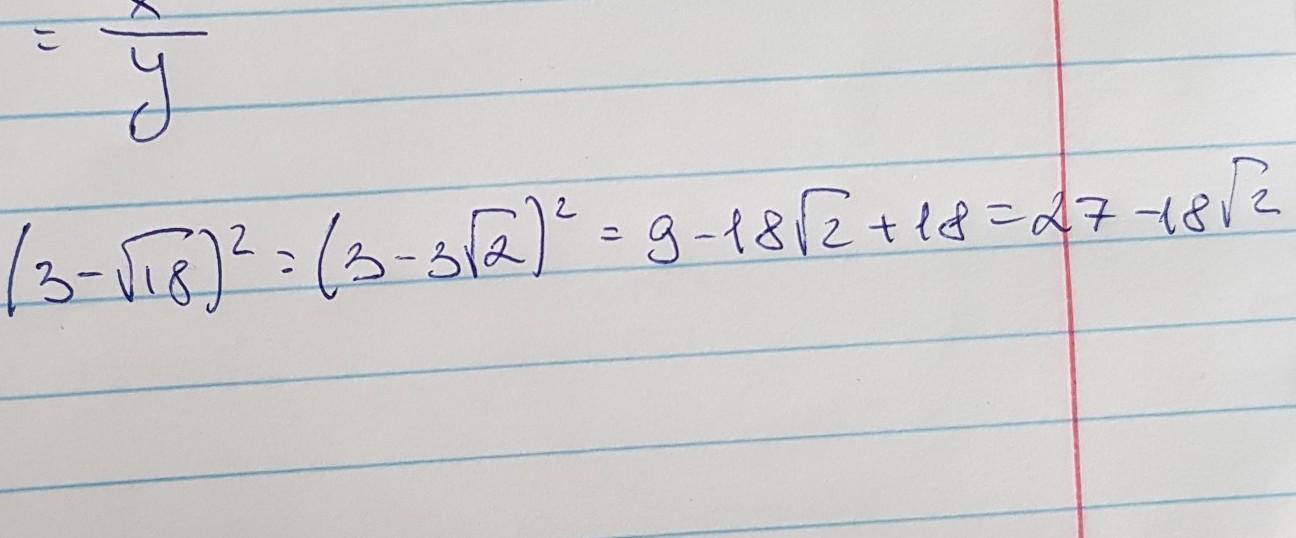 = x/y
(3-√18)² = (3-3√2)² = 9-18√2+18 = 27-18√2